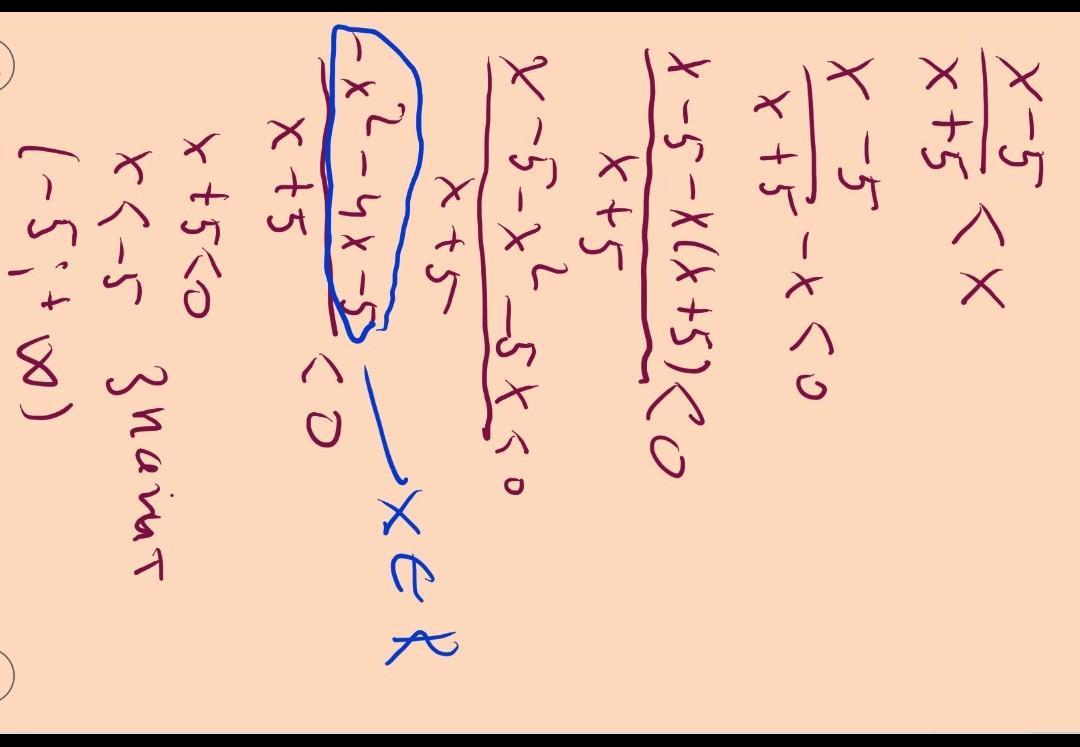 (x-5)/(x+5) < x
(x-5)/(x+5) - x < 0
(x-5-x(x+5))/(x+5) < 0
(x-5-x²-5x)/(x+5) < 0
(-x²-4x-5)/(x+5) < 0
x ∈ R
x+5<0
x<-5 значит
(-5; +∞)